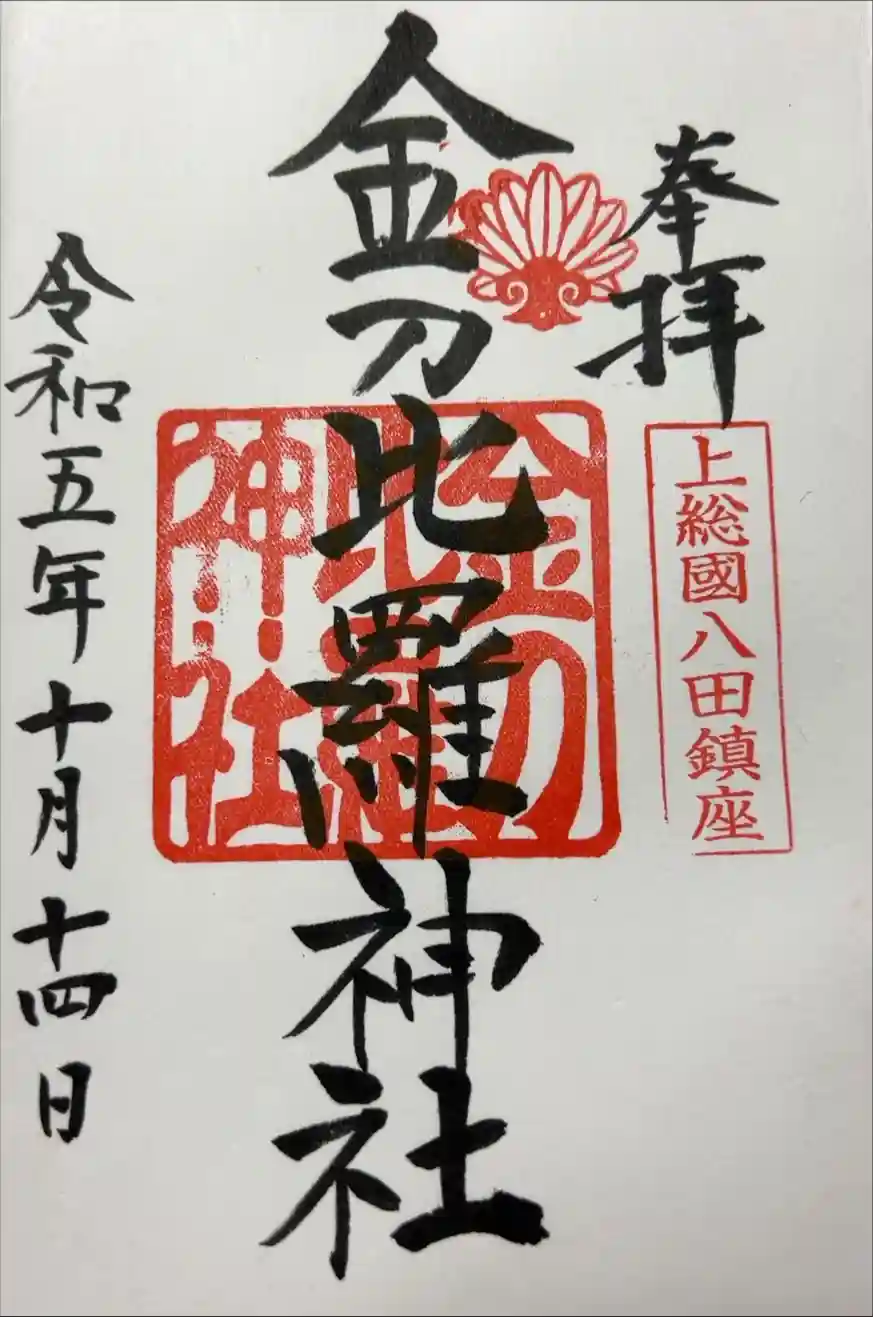 奉拝
上総國八田鎮座
金刀比羅神社
金刀
比羅
神社
令和五年十月十四日